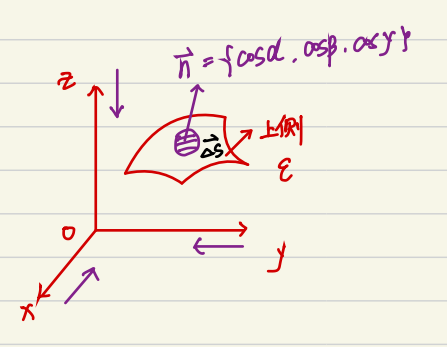 n⃗ = {cosα, cosβ, cosγ}
z
上侧
ΔS⃗
Σ
O
y
x